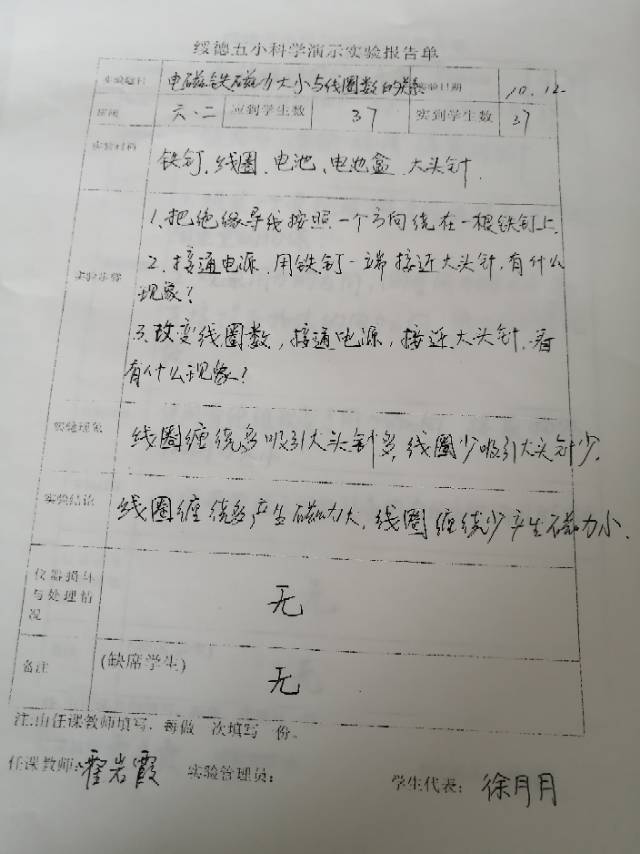 绥德五小科学演示实验报告单
实验题目 电磁铁磁力大小与线圈数的关系 实验日期 10.12
班级 六、二 应到学生数 37 实到学生数 37
实验材料 铁钉、线圈、电池、电池盒、大头针.
1、把绝缘导线按照一个方向绕在一根铁钉上.
2、接通电源,用铁钉一端接近大头针,有什么
实验步骤
现象?
3、改变线圈数,接通电源,接近大头针,看
有什么现象?
实验现象 线圈缠绕多吸引大头针多,线圈少吸引大头针少.
实验结论 线圈缠绕多产生磁力大,线圈缠绕少产生磁力小.
仪器损坏
与处理情 无
况
备注 (缺席学生) 无
注:由任课教师填写,每做一次填写一份。
任课教师:霍岩霞 实验管理员: 学生代表:徐月月